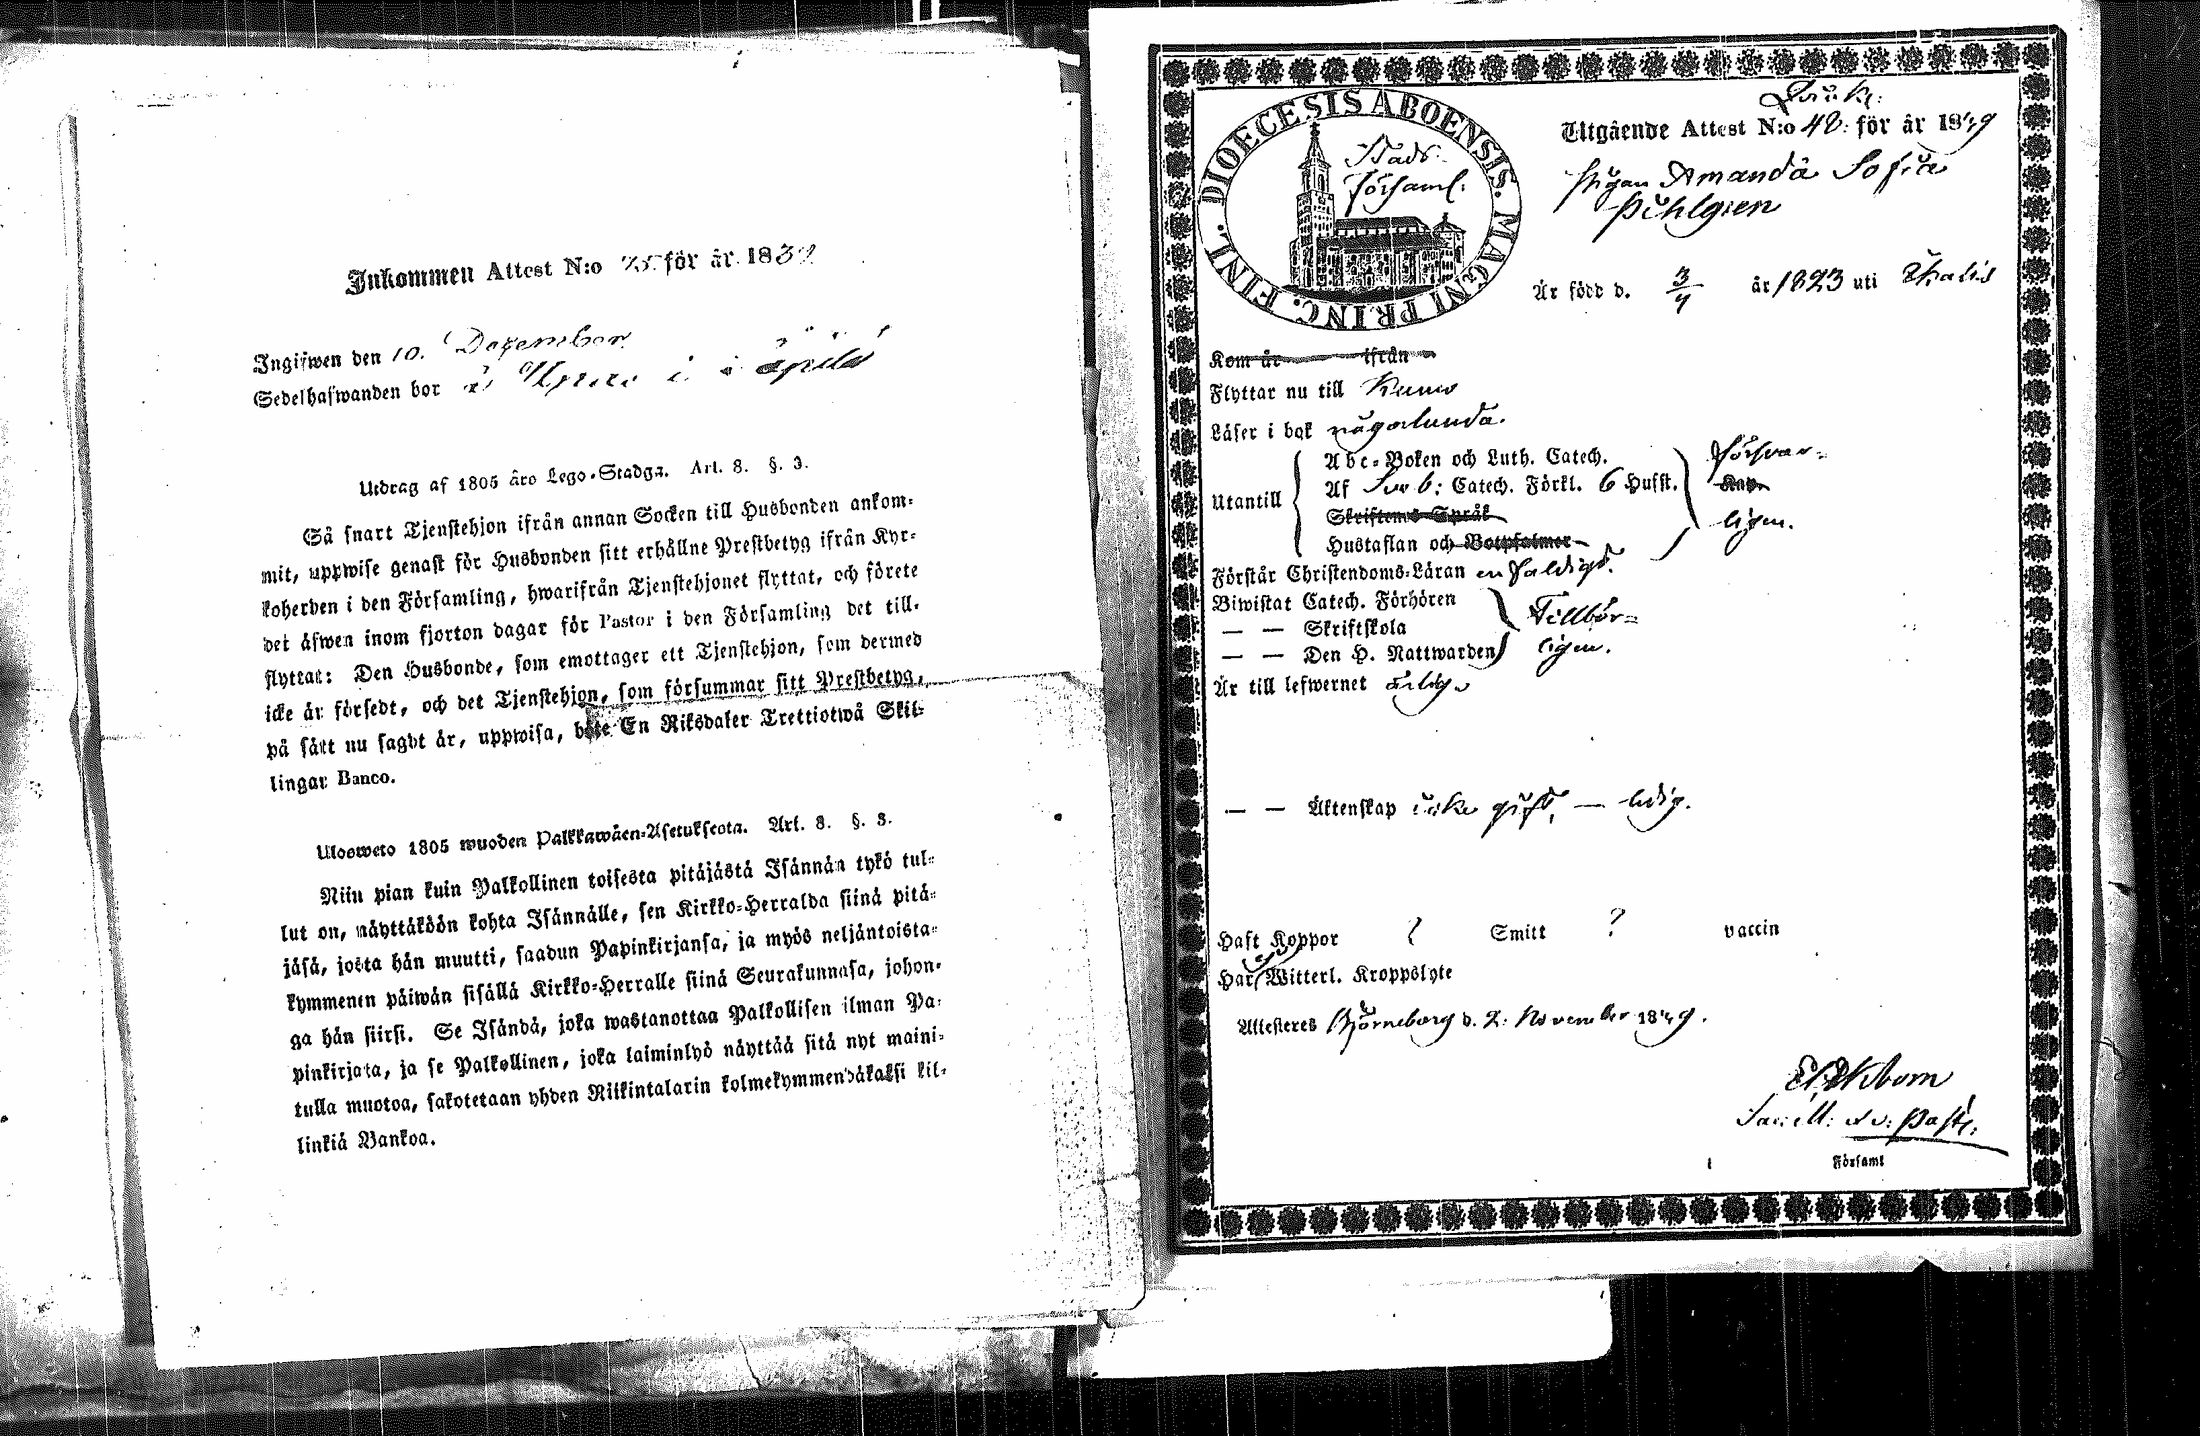 Inkommen Attest N:o 75 för år 183
Ingifwen den 10. Dezember
Sedelhafwanden bor
Utdrag af 1805 års Lego-Stadga. Art. 8. §. 3.
Så snart Tjenstehjon ifrån annan Socken till Husbonden ankom-
mit, uppwise genast för Husbonden sitt erhållne Prestbetyg ifrån Kyr-
koherden i den Församling, hwarifrån Tjenstehjonet flyttat, och förete
det äfwen inom fjorton dagar för Pastor i den Församling det till-
flyttat: Den Husbonde, som emottager ett Tjenstehjon, som dermed
icke är försedt, och det Tjenstehjon, som försummar sitt Prestbetyg,
på sätt nu sagdt är, uppwisa, böte En Riksdaler Trettiotwå Skil-
lingar Banco.
Ulosweto 1805 wuoden Palkkawäen-Asetuksesta. Art. 8. §. 3.
Niin pian kuin Palkollinen toisesta pitäjästä Isännän tykö tul-
lut on, näyttäköön kohta Isännälle, sen Kirkko-Herralda siinä pitä-
jäsä, josta hän muutti, saadun Papinkirjansa, ja myös neljäntoista-
kymmenen päiwän sisällä Kirkko-Herralle siinä Seurakunnasa, johon-
ga hän siirsi. Se Isändä, joka wastanottaa Palkollisen ilman Pa-
pinkirjata, ja se Palkollinen, joka laiminlyö näyttää sitä nyt maini-
tulla muotoa, sakotetaan yhden Riikintalarin kolmekymmendäkaksi kil-
linkiä Bankoa.
DIOECESIS ABOENSIS. MAGNI PRINC. FINL.
Stads-
församl:
Utgående Attest N:o 48: för år 1849
Pigan Amanda Sofia
Pihlgren
Är född d. 3/4 år 1823 uti
Kom år ifrån
Flyttar nu till Kumo
Läser i bok någorlunda.
Utantill
Abc-Boken och Luth. Catech.
Af Sveb: Catech. Förkl. 6 Hufst.
Skriftenes Språk
Hustaflan och Botpsalmer
försvar-
ligen.
Förstår Christendoms-Läran enfaldigt.
Biwistat Catech. Förhören
— — Skriftskola
— — Den H. Nattwarden
Tillbör-
ligen.
Är till lefwernet ärlig
— — Äktenskap icke gift, — ledig.
Haft Koppor ? Smitt ? vaccin
Har Witterl. Kroppslyte
Attesteres Björneborg d. 2: November 1849.
Ekbom
Sacell: v: Past:
Församl